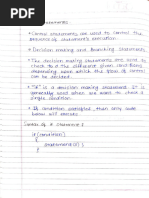 statements
• Control statements are used to control the
presence of statement's execution.
• Decision making and Branching Statement
• Decision making statements are used to
check the different given conditions
depending on which the flow of control
can be decided.
• "If" is a decision making statement. It is
generally used when we want to check a
single condition.
• If condition accepted then only code
below will execute
Syntax of if statement:
if (condition)
{
statement(s);
}